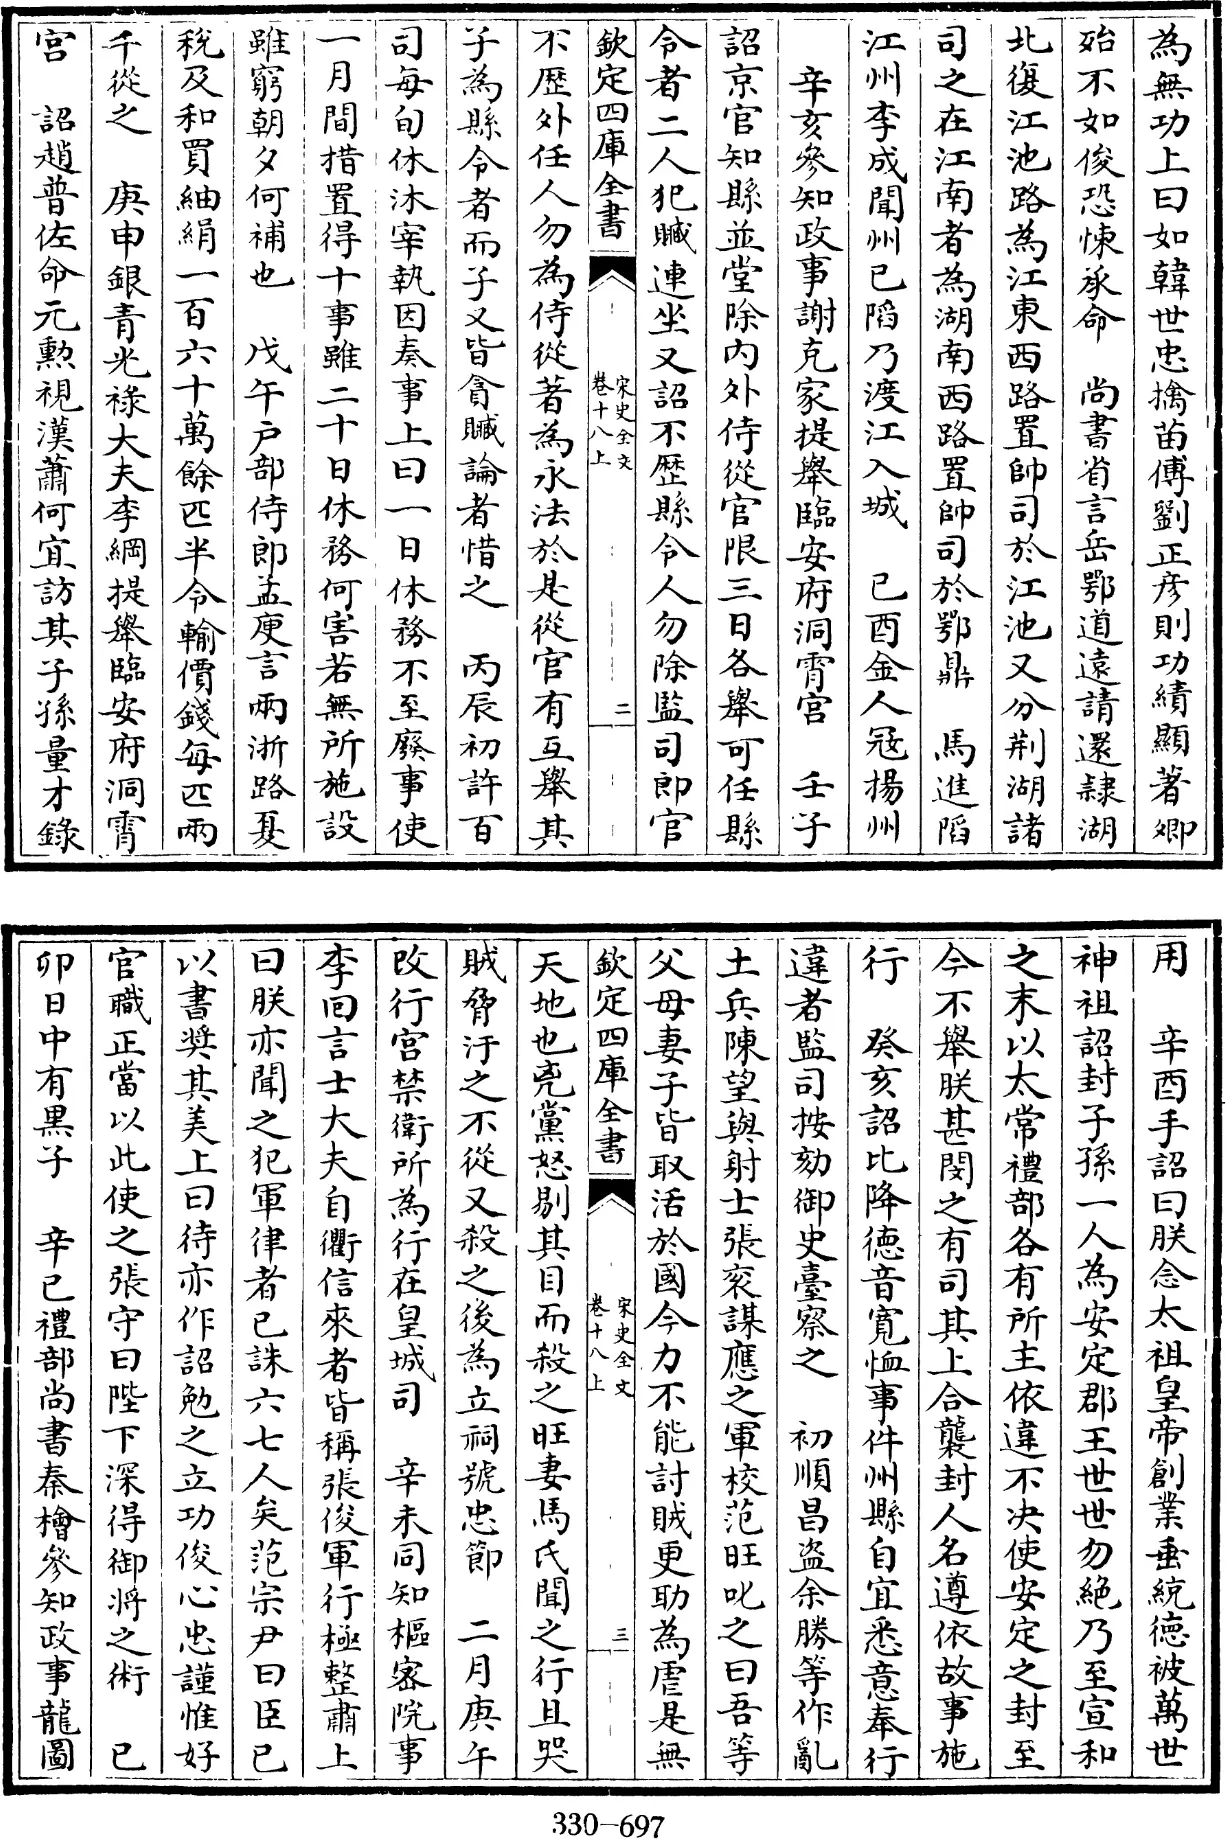 為無功上曰如韓世忠擒苗傅劉正彦則功績顯著卿
殆不如俊恐悚承命　尚書省言岳鄂道遠請還隸湖
北復江池路為江東西路置帥司於江池又分荆湖諸
司之在江南者為湖南西路置帥司於鄂鼎　馬進䧟
江州李成聞州已䧟乃渡江入城　已酉金人冦揚州
辛亥參知政事謝克家提舉臨安府洞霄宫　壬子
詔京官知縣並堂除内外侍從官限三日各舉可任縣
令者二人犯贓連坐又詔不歴縣令人勿除監司郎官
欽定四庫全書
宋史全文
卷十八上
二
不歴外任人勿為侍從著為永法於是從官有互舉其
子為縣令者而子又皆貪贓論者惜之　丙辰初許百
司每旬休沐宰執因奏事上曰一日休務不至廢事使
一月間措置得十事雖二十日休務何害若無所施設
雖窮朝夕何補也　戊午户部侍郎孟庾言兩浙路夏
稅及和買紬絹一百六十萬餘匹半令輸價錢每匹兩
千從之　庚申銀青光祿大夫李綱提舉臨安府洞霄
宫　詔趙普佐命元勲視漢蕭何宜訪其子孫量才錄
用　辛酉手詔曰朕念太祖皇帝創業垂統德被萬世
神祖詔封子孫一人為安定郡王世世勿絶乃至宣和
之末以太常禮部各有所主依違不决使安定之封至
今不舉朕甚閔之有司其上合襲封人名遵依故事施
行　癸亥詔比降德音寛恤事件州縣自宜悉意奉行
違者監司按劾御史臺察之　初順昌盗余勝等作亂
土兵陳望與射士張衮謀應之軍校范旺叱之曰吾等
父母妻子皆取活於國今力不能討賊更助為虐是無
欽定四庫全書
宋史全文
卷十八上
三
天地也兇黨怒剔其目而殺之旺妻馬氏聞之行且哭
賊脅汙之不從又殺之後為立祠號忠節　二月庚午
改行宫禁衛所為行在皇城司　辛未同知樞宻院事
李回言士大夫自衢信來者皆稱張俊軍行極整肅上
曰朕亦聞之犯軍律者已誅六七人矣范宗尹曰臣已
以書奬其美上曰待亦作詔勉之立功俊心忠謹惟好
官職正當以此使之張守曰陛下深得御將之術　已
卯日中有黒子　辛已禮部尚書秦檜參知政事龍圖
330-697